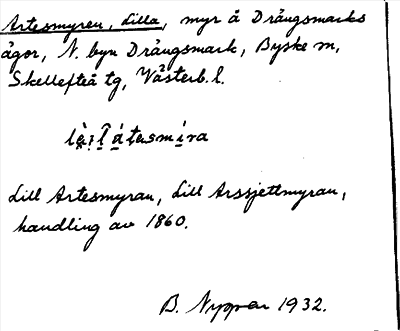 Artesmyren, Lilla, myr å Drångsmarks
ägor, N. byn Drångsmark, Byske sn,
Skellefteå tg, Västerb. l.
Lill Artesmyran, Lill Arssjettmyran,
handling av 1860.
B. Nyman 1932.